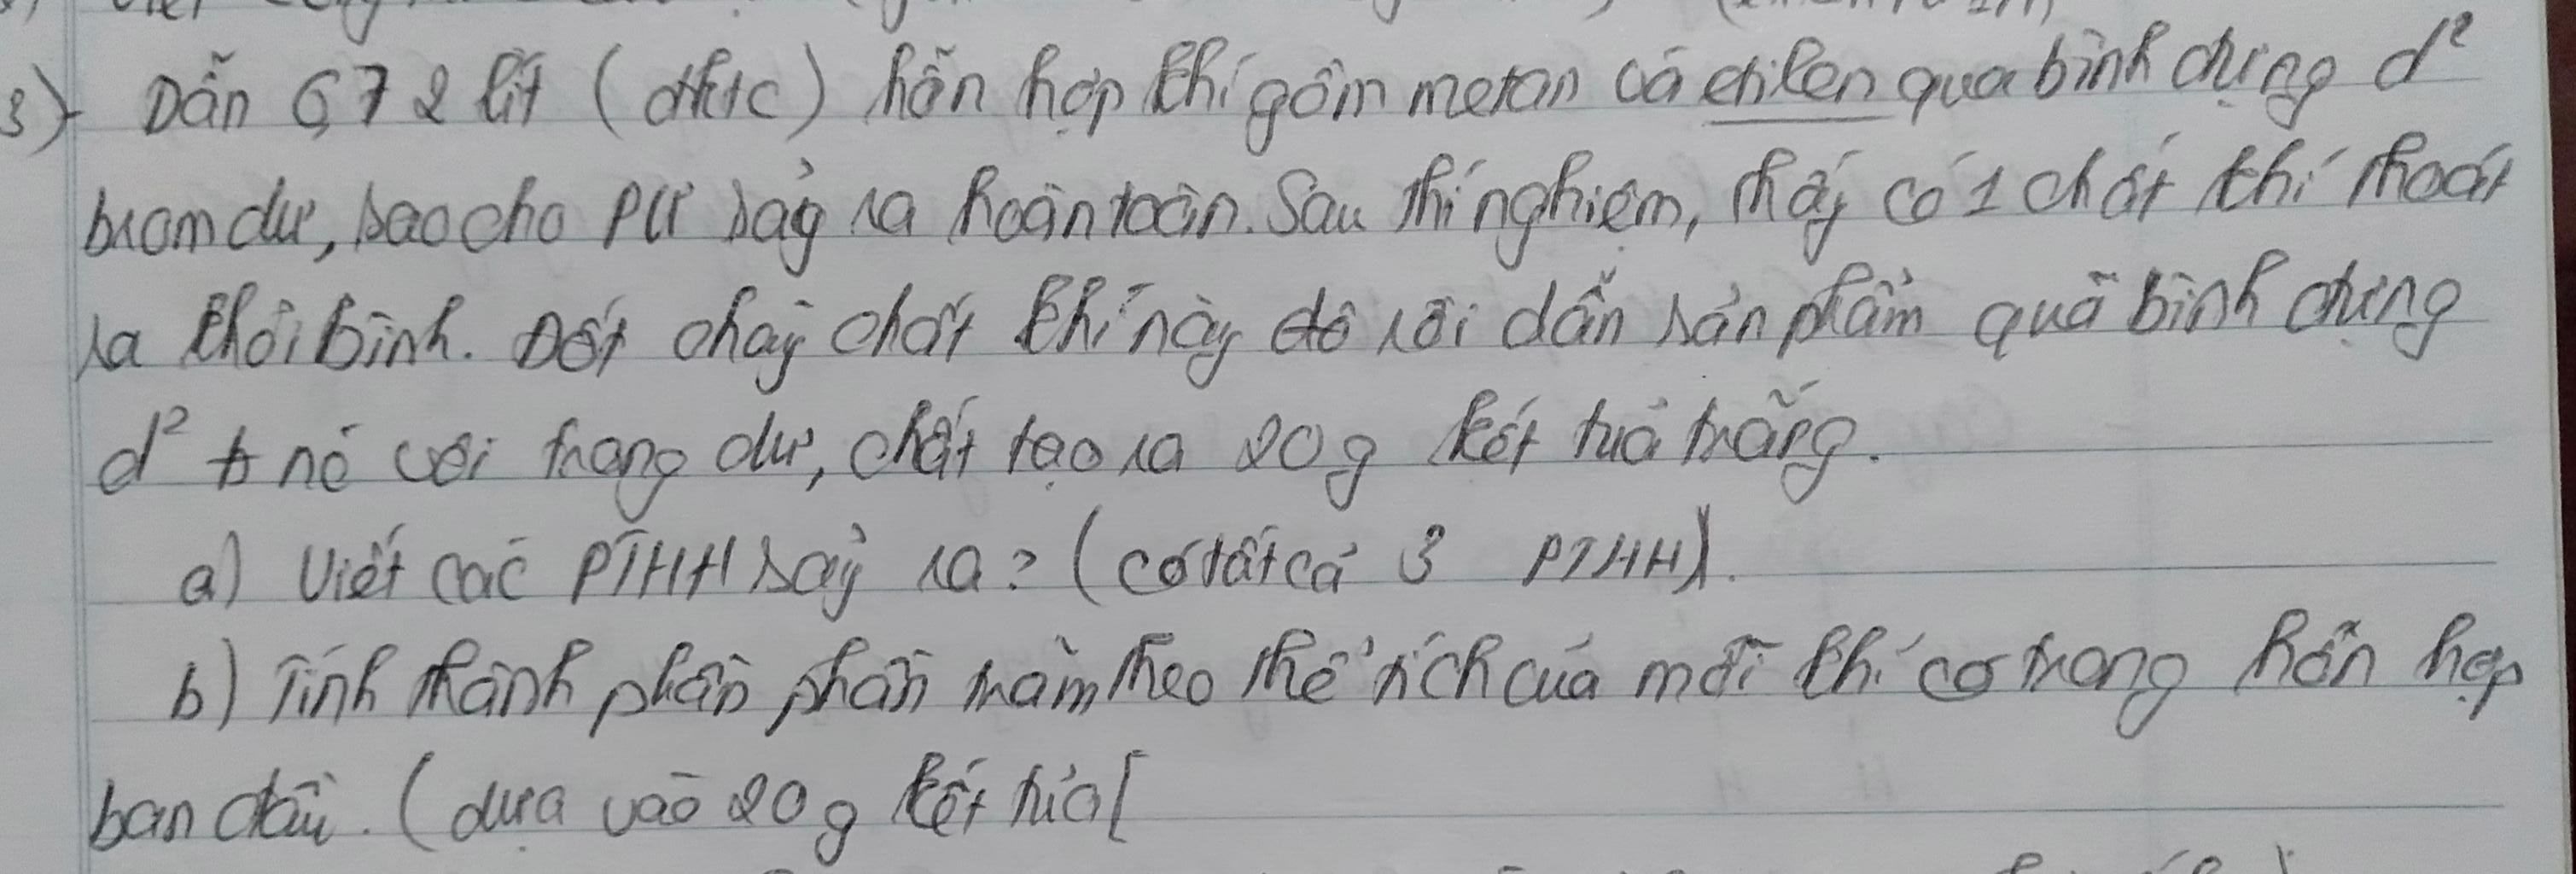 3) Dẫn 6,72 lít (đktc) hỗn hợp khí gồm metan và etilen qua bình đựng d²
brom dư, sao cho PƯ xảy ra hoàn toàn. Sau thí nghiệm, thấy có 1 chất khí thoát
ra khỏi bình. Đốt cháy chất khí này đó rồi dẫn sản phẩm quả bình đựng
d² nc vôi trong dư, chất tạo ra 20g kết tuả trắng.
a) Viết các PTHH xảy ra? (có tất cả 3 PTHH).
b) Tính thành phần phần trăm theo thể tích của mỗi khí có trong hỗn hợp
ban đầu. (dựa vào 20g kết tủa[